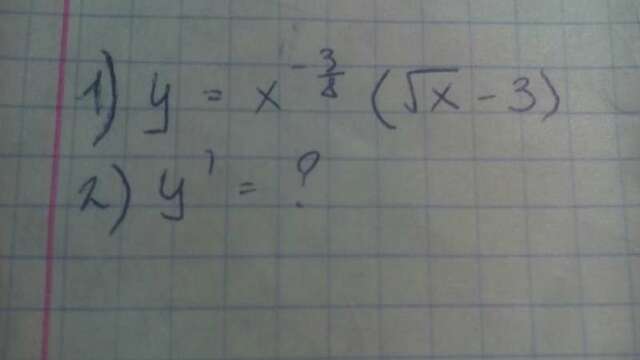 1) y = x^{-3/8} (√x - 3)
2) y' = ?